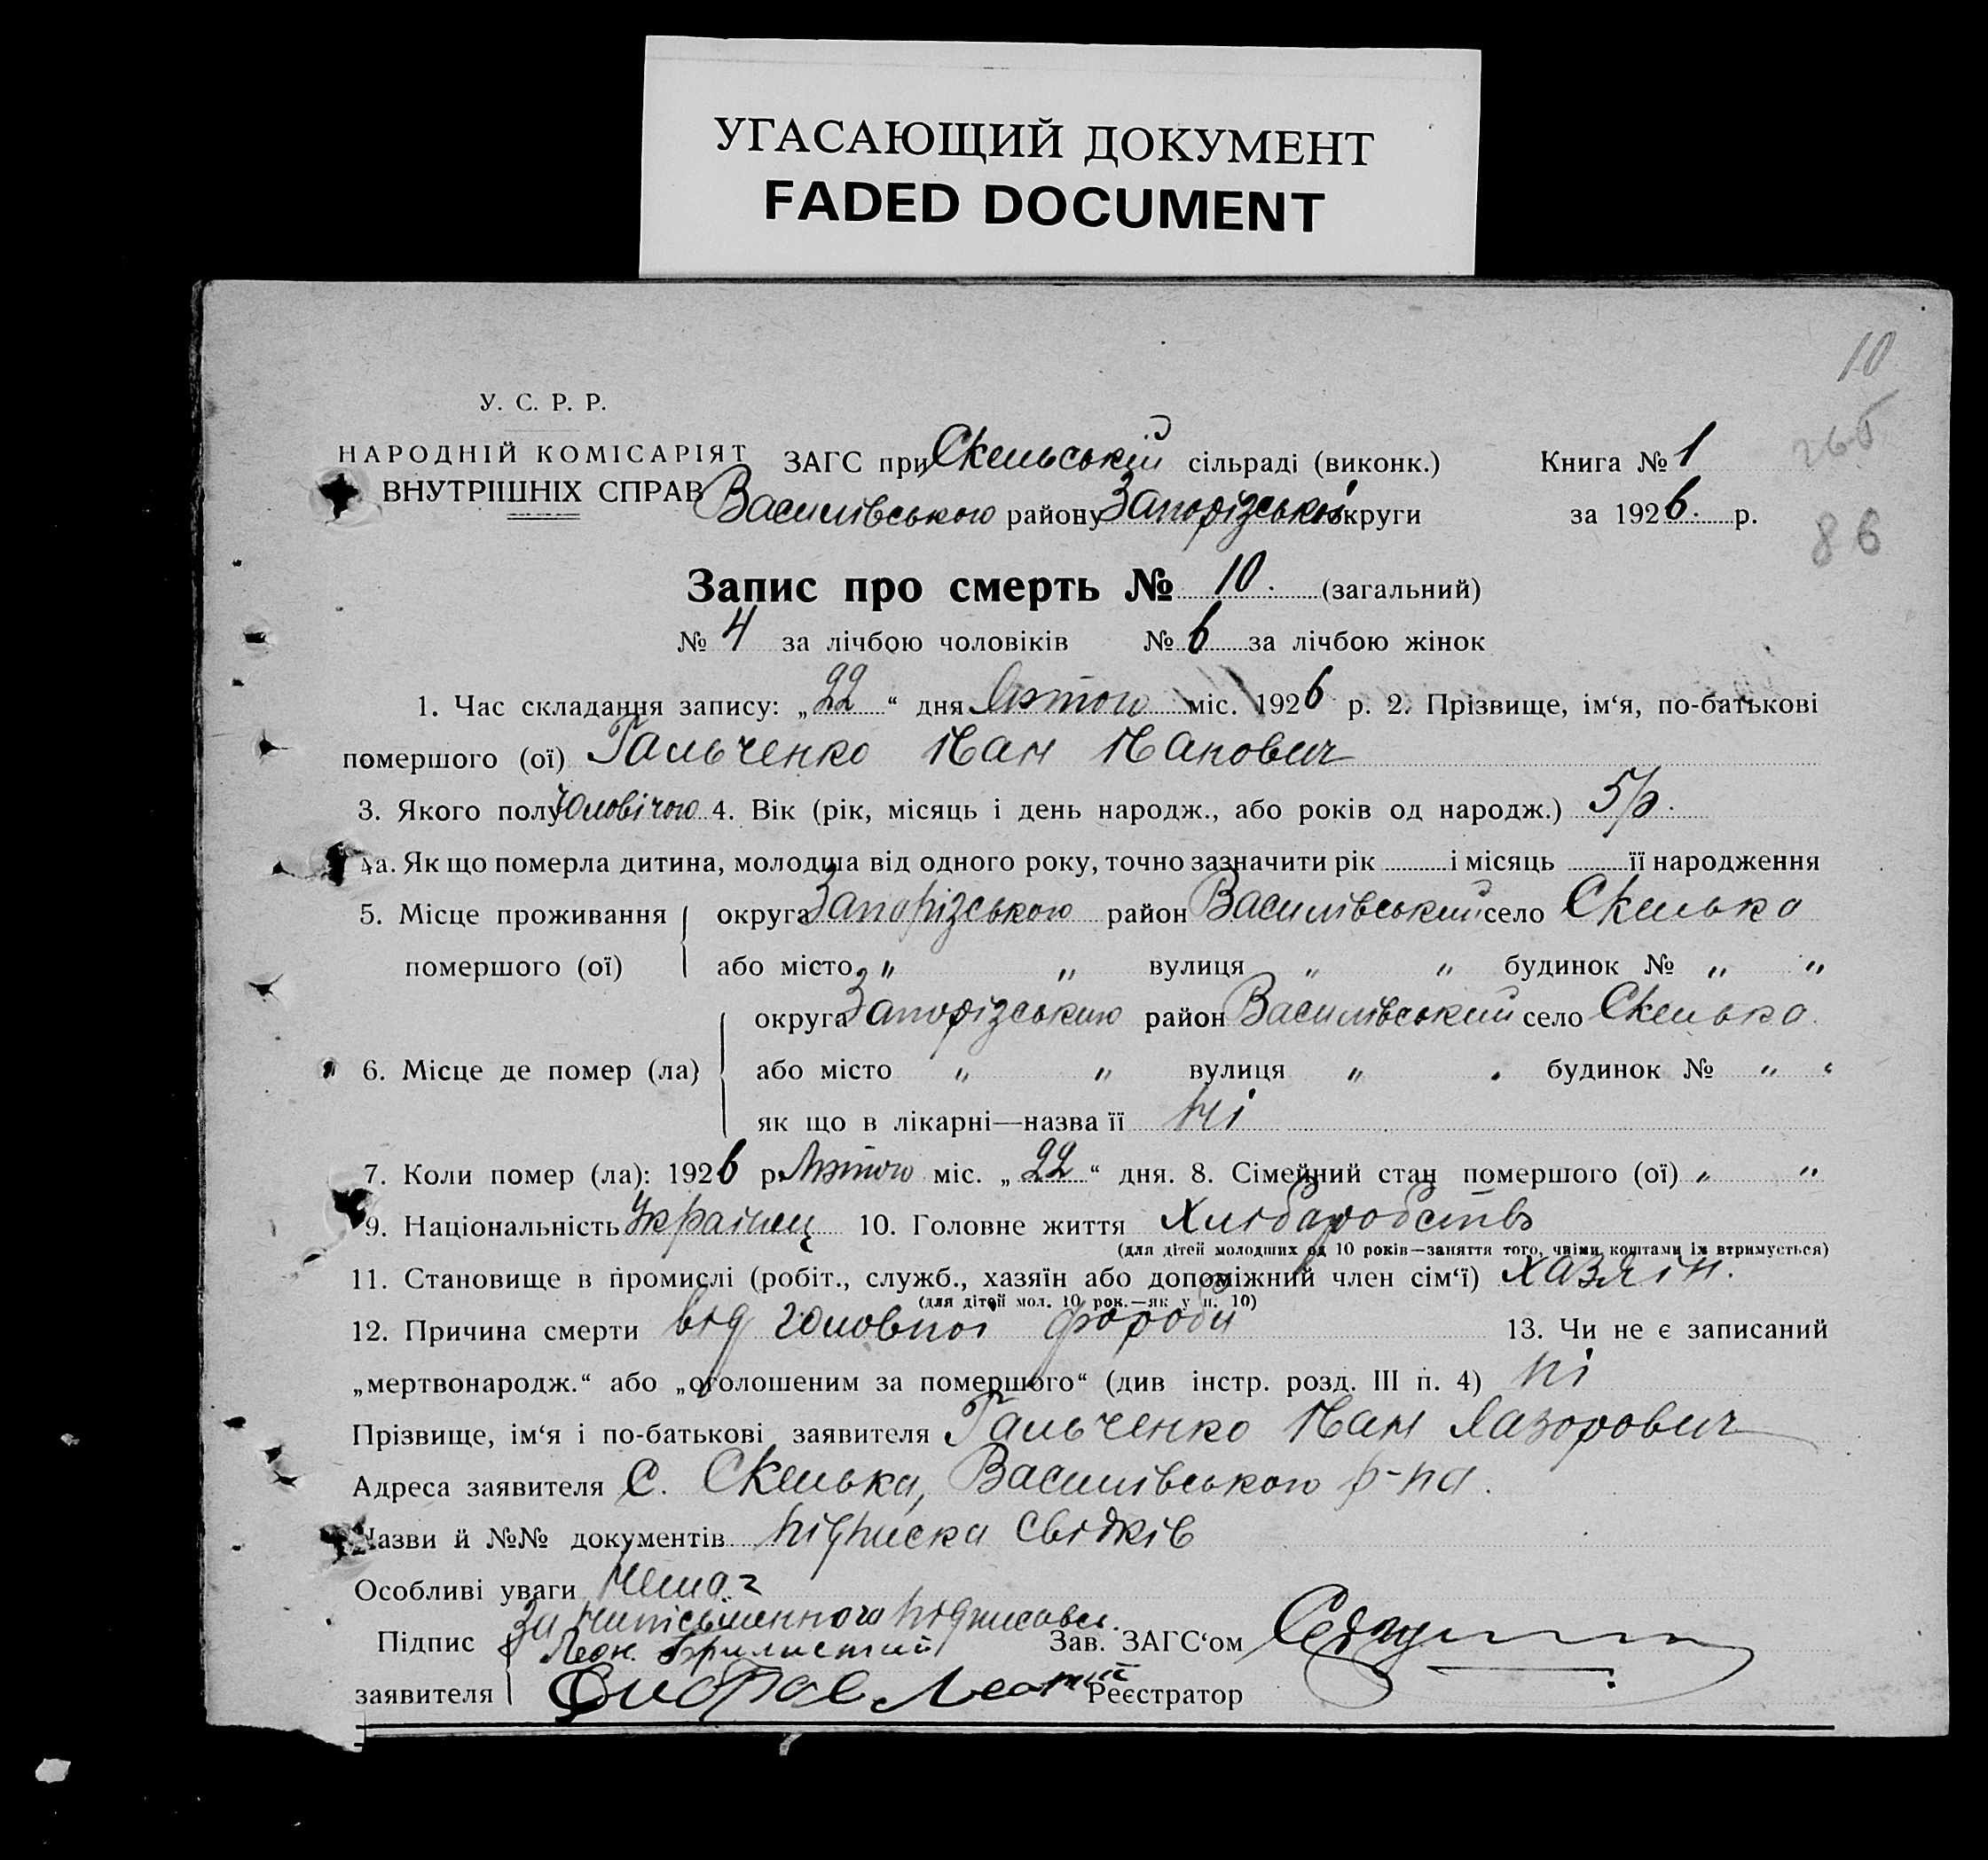 УГАСАЮЩИЙ ДОКУМЕНТ
FADED DOCUMENT
10
У. С. Р. Р.
НАРОДНІЙ КОМІСАРІЯТ
ВНУТРІШНІХ СПРАВ
ЗАГС при Скельській сільраді (виконк.) Книга № 1
Василівського району Запорізської округи за 1926. р.
86
Запис про смерть № 10. (загальний)
№ 4 за лічбою чоловіків № 6 за лічбою жінок
1. Час складання запису: „22“ дня Лютого міс. 1926 р. 2. Прізвище, ім‘я, по-батькові
помершого (ої) Гальченко Иан Ианович
3. Якого полу Чоловічого 4. Вік (рік, місяць і день народж., або років од народж.) 5/р.
4а. Як що померла дитина, молодша від одного року, точно зазначити рік і місяць її народження
5. Місце проживання помершого (ої) округа Запорізського район Василівський село Скелька
або місто „ „ вулиця „ „ будинок № „ „
6. Місце де помер (ла) округа Запорізського район Василівський село Скелька.
або місто „ „ вулиця „ „ будинок № „ „
як що в лікарні—назва її Ні
7. Коли помер (ла): 1926 р. Лютого міс. „22“ дня. 8. Сімейний стан помершого (ої) „ „
9. Національність Українец 10. Головне життя Хлібаробство
(для дітей молодших од 10 років—заняття того, чиїми коштами їх втримується)
11. Становище в промислі (робіт., служб., хазяїн або допоміжний член сім‘ї) хазяїн.
(для дітей мол. 10 рок.—як у п. 10)
12. Причина смерти від головної фороби 13. Чи не є записаний
„мертвонародж.“ або „оголошеним за помершого“ (див інстр. розд. III п. 4) ні
Прізвище, ім‘я і по-батькові заявителя Гальченко Иан Лазорович
Адреса заявителя С. Скелька, Василівського р-на.
Назви й №№ документів підписка свідків
Особливі уваги Нема
За неписьменного підписавсь
Підпис заявителя Леон.
Зав. ЗАГС‘ом
Реєстратор